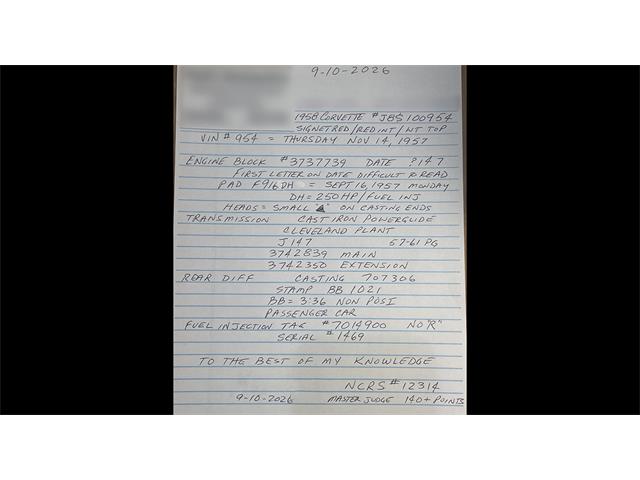 9-10-2026
1958 CORVETTE # J58S100954
SIGNET RED/RED INT/WT TOP
VIN # 954 = THURSDAY NOV 14, 1957
ENGINE BLOCK # 3737739 DATE ?147
FIRST LETTER ON DATE DIFFICULT TO READ
PAD F916DH = SEPT 16, 1957 MONDAY
DH = 250HP/FUEL INJ
HEADS = SMALL ON CASTING ENDS
TRANSMISSION CAST IRON POWERGLIDE
CLEVELAND PLANT
J147 57-61 PG
3742839 MAIN
3742350 EXTENSION
REAR DIFF CASTING 707306
STAMP BB 1021
BB = 3:36 NON POSI
PASSENGER CAR
FUEL INJECTION TAG # 7014900 NO "R"
SERIAL # 1469
TO THE BEST OF MY KNOWLEDGE
NCRS # 12314
9-10-2026 MASTER JUDGE 140+ POINTS